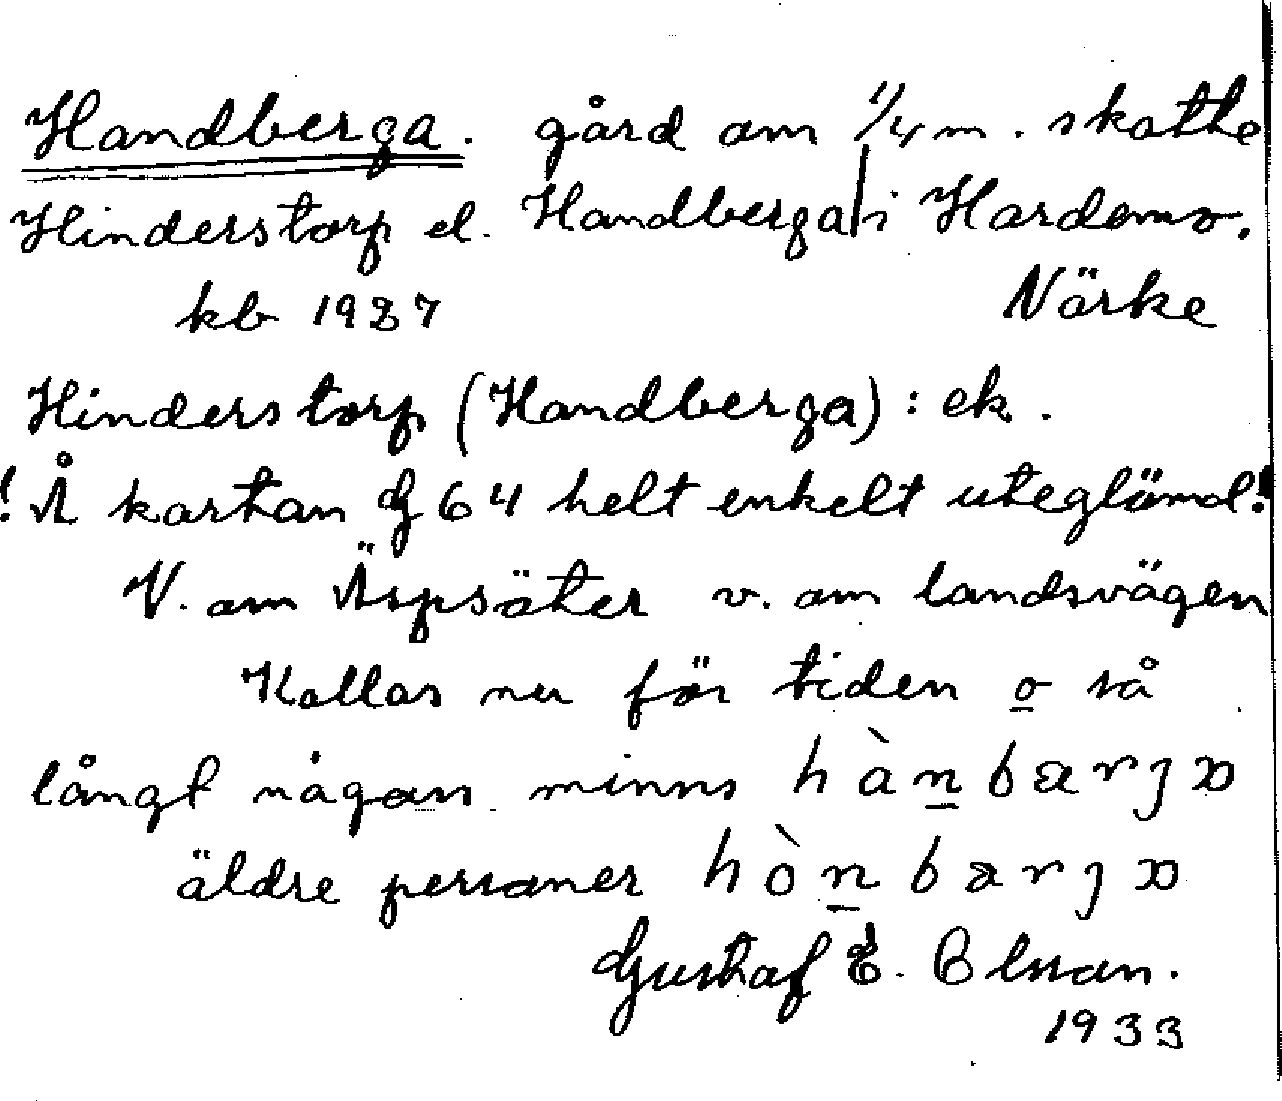 Handberga. gård om 1/4 m. skatte
Hinderstorp el. Handberga| i Hardemo.
kb 1927 Närke
Hinderstorp (Handberga): ek.
! Å kartan G 64 helt enkelt uteglömd!
V. om Äspsäter v. om landsvägen
Kallas nu för tiden o så
långt någon minns hànbærjɒ
äldre personer hònbærjɒ
Gustaf E. Olsson.
1933